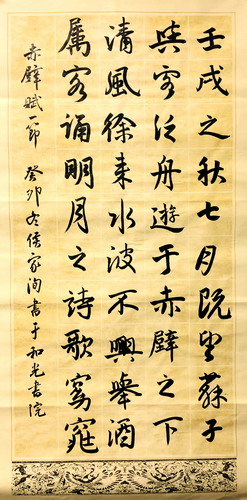 壬戌之秋七月既望蘇子
與客泛舟遊于赤壁之下
清風徐来水波不興舉酒
属客誦明月之詩歌窈窕
赤壁賦一節 癸卯冬侯家洵書于和光書院